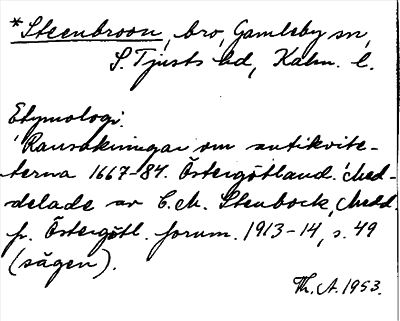 *Steenbroon, bro, Gamleby sn,
S. Tjusts hd, Kalm. l.
Etymologi:
Ransakningar om antikvite-
terna 1667-84. Östergötland. Med-
delade av C. M. Stenbock, Medd.
fr. Östergötl. fornm. 1913-14, s. 49
(sägen).
Th. A. 1953.